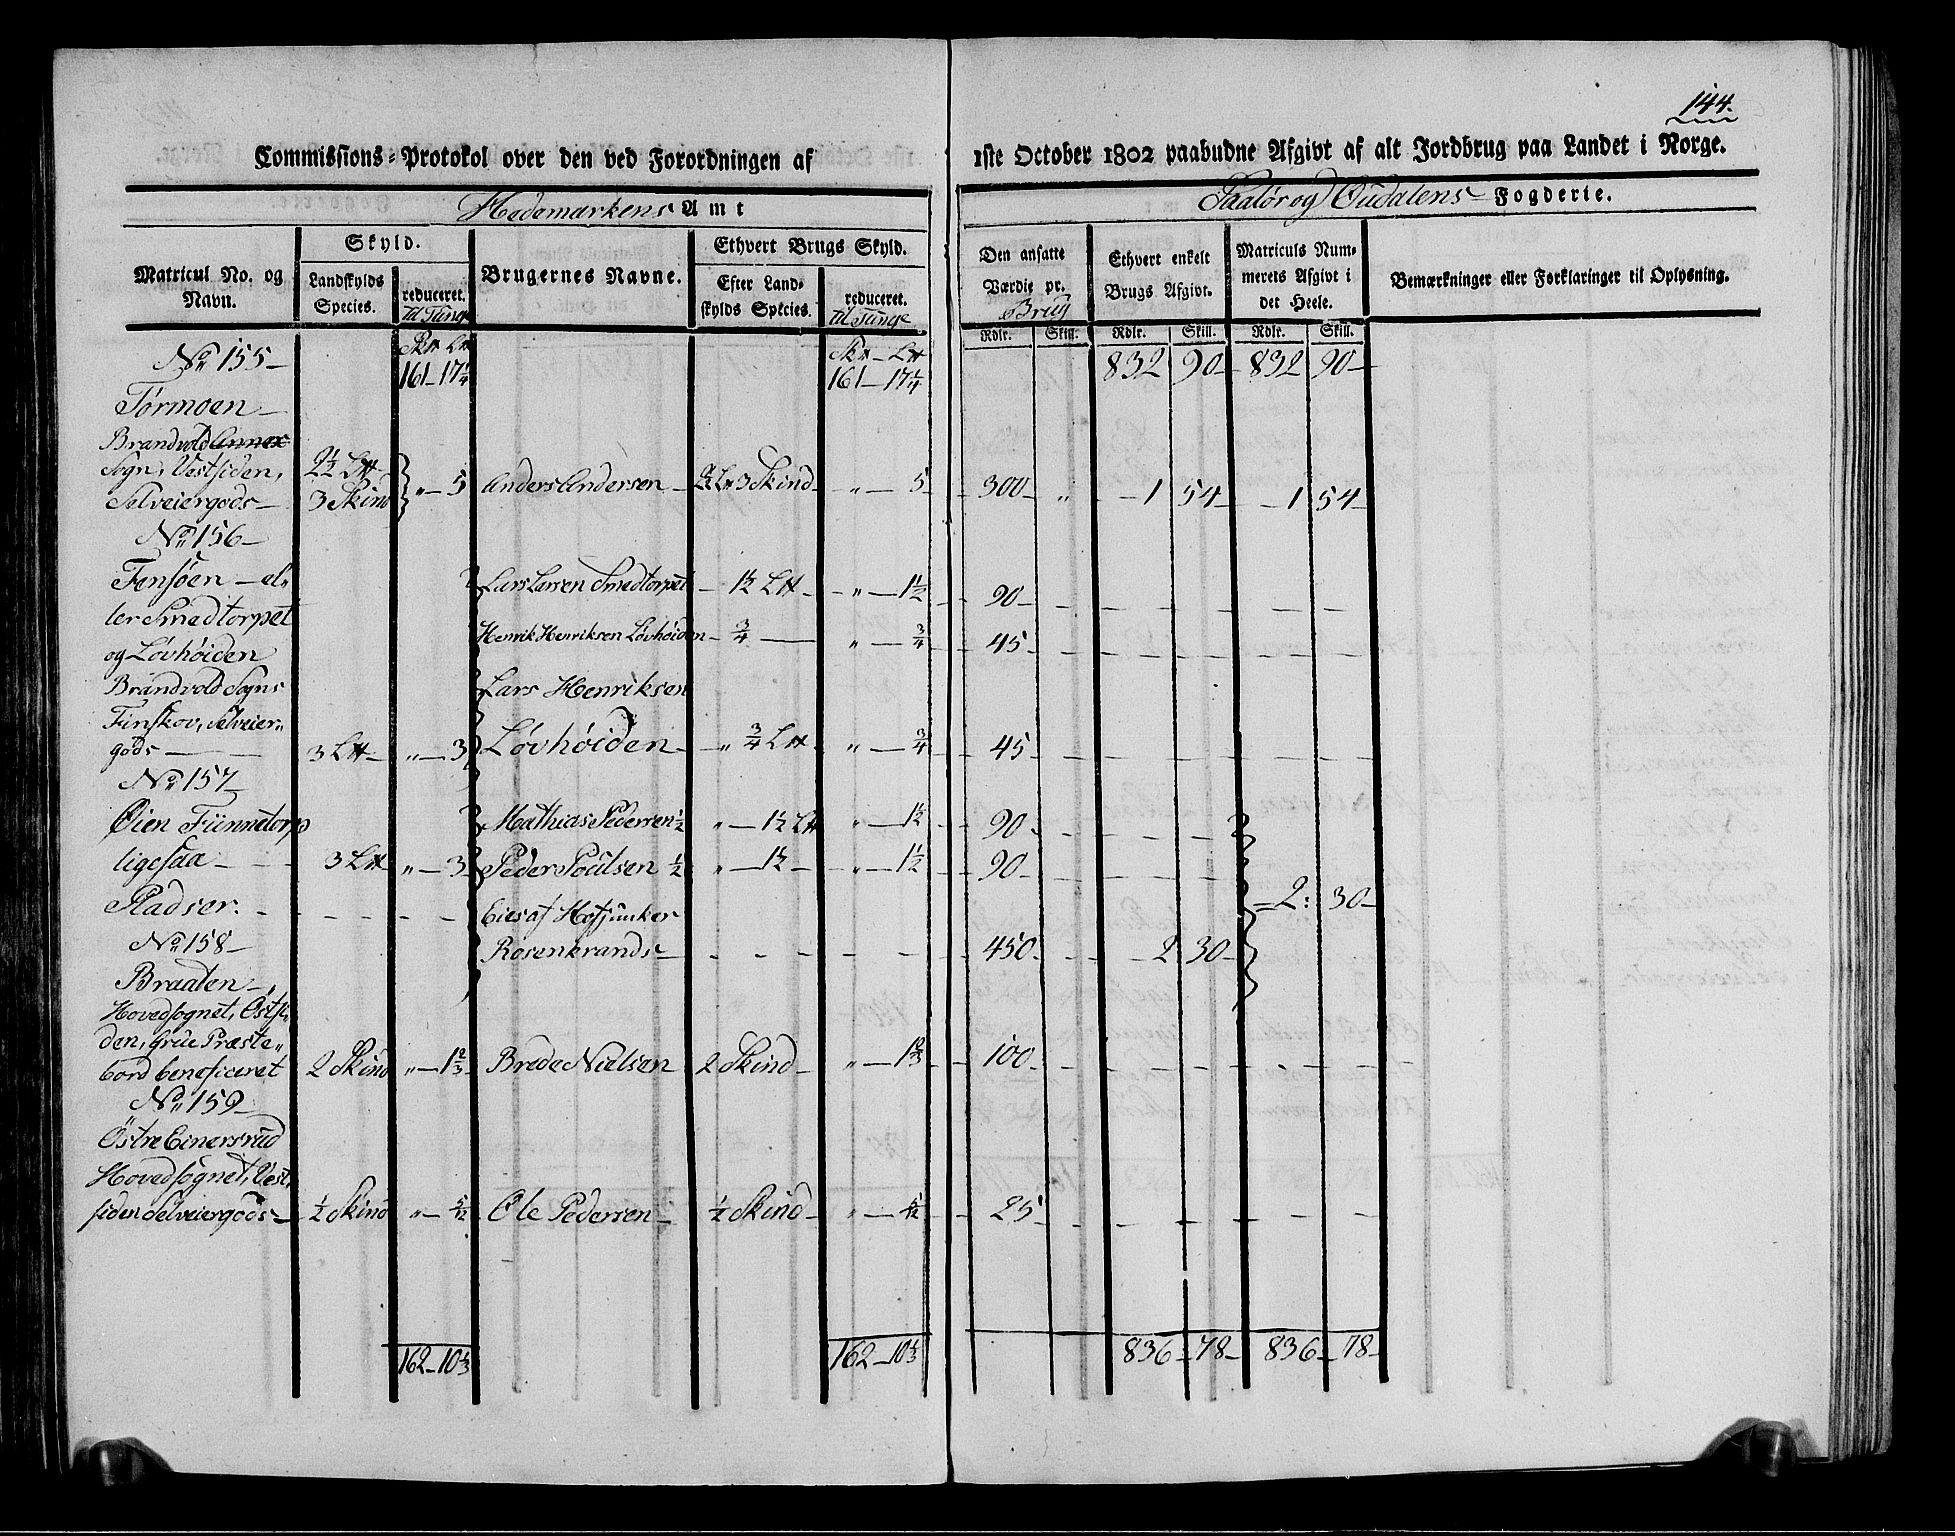 144.
Commissions-Protokol over den ved Forordningen af 1ste October 1802 paabudne Afgivt af alt Jordbrug paa Landet i Norge.
Hedemarkens Amt
Soløer og Oudalens Fogderie.
Matricul No. og Navn.
Skyld.
Landskylds Species.
reduceret.
til Tunge
Brugernes Navne.
Ethvert Brugs Skyld.
Efter Landskylds Species.
reduceret.
til Tunge
Den ansatte Værdie pr.
Brug
Ethvert enkelt Brugs Afgivt.
Matriculs Nummerets Afgivt i det Heele.
Bemærkninger eller Forklaringer til Oplysning.
Rdlr. Skill. Rdlr. Skill. Rdlr. Skill.
No 155 161-17¼ 161-17¼ 832 90 832 90
Tørmoen
Brandvold Annex
Sogn, Vestsiden, 2½ L℔
Selveiergods 3 Skind „-5 Anders Andersen 3 Skind „-5 300 „ 1 54 1 54
No 156
Fensøen - el„ Lars Larsen Smedtorpet 1½ L℔ „-1½ 90
ler Smedtorpet
og Løvhøiden Henrik Henriksen Løvhøiden ¾ „-¾ 45
Brandvold Sogns Lars Henriksen
Finskov, Selveier„
gods 3 L℔ „-3 Løvhøiden „ ¾ L℔ „-¾ 45
No 157
Øien Finnetorp Mathias Pedersen ½ „-1½ L℔ „-1½ 90
ligesaa 3 L℔ „-3 Peder Poulsen ½ „-1½ „-1½ 90
Pladser. Eies af Hofjunker 2: 30
No 158 Rosenkrands 450 2 30
Braaten
Hovedsognet, Østsi„
den, Grue Præste„
bord beneficeret 2 Skind „-1⅔ Brede Nielsen 2 Skind „-1⅔ 100
No 159
Østre Einersrud
Hovedsognet, Vest„
siden Selveiergods ½ Skind „-5/12 Ole Pedersen ½ Skind „-5/12 25
162-10⅓ 162-10⅓ 836-78 836-78